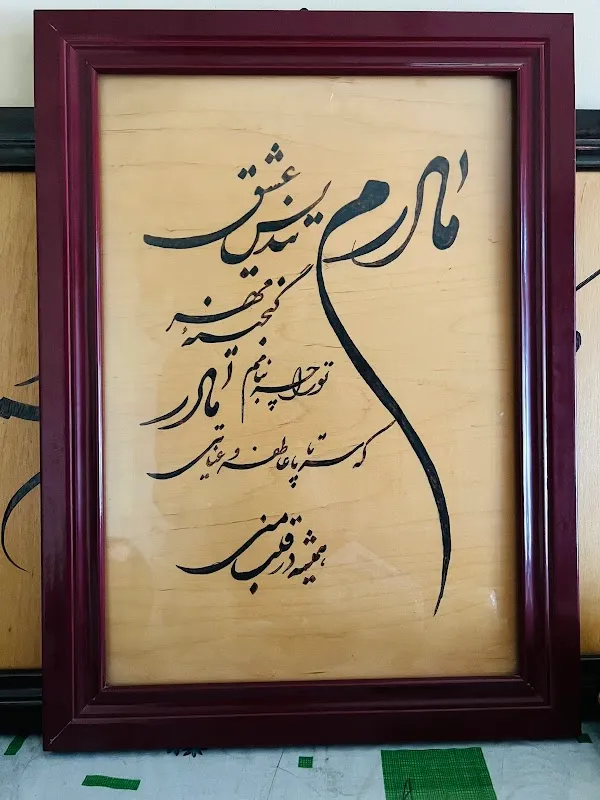 مادرم
تندیس عشق
گنجینهٔ مهر
تو را چه بنامم مادر
که سر تا پا عاطفه و عنایتی
همیشه در قلب منی